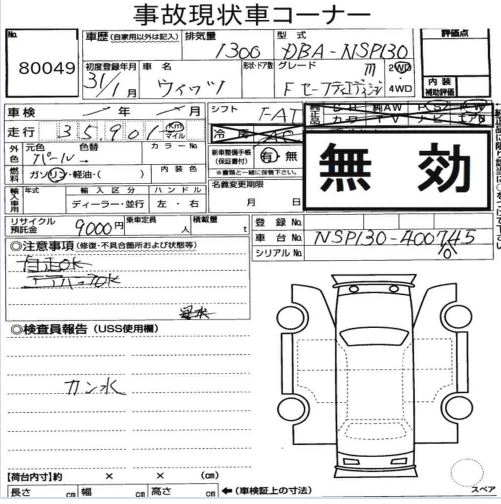 事故現状車コーナー
No. 80049
車歴(自家用以外は記入)
排気量 1300
型式 DBA-NSP130
評価点
初度登録年月 31/1月
車名 ヴィッツ
形状・ドア数
グレード F セーフティエディション III
2WD
4WD
内装補助評価
車検 年 月
シフト FAT
走行 35,901 km マイル
冷房 AC
純正品 純AW PS PW
カワ TV ナビ エアB
外色 元色 パール→ 色替 カラーNo.
新車整備手帳(保証書付) 有・無
※書類と一緒に保管下さい。
燃料 ガソリン・軽油・( ) 内装色
無効
輸入車用 年式 輸入区分 ディーラー・並行 ハンドル 左・右
名義変更期限 月 日
リサイクル預託金 9000円
乗車定員 人
積載量 t
登録No.
車台No. NSP130-400745
シリアルNo.
◎注意事項(修復・不具合箇所および状態等)
自走OK
エアバッグOK
浸水
◎検査員報告(USS使用欄)
カン水
【荷台内寸】約 × × (cm)
長さ cm 幅 cm 高さ cm ←(車検証上の寸法)
スペア